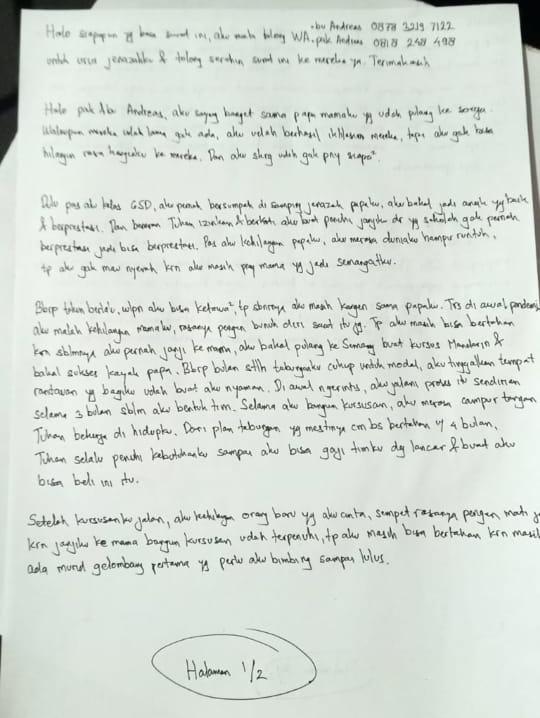 Halo siapapun yg baca surat ini, aku mau tolong WA
bu Andreas 0878 3219 7122
pak Andreas 0818 248 498
untuk urus jenazahku & tolong serahin surat ini ke mereka ya. Terimakasih
Halo pak &bu Andreas, aku sayang banget sama papa mamaku yg udah pulang ke surga.
Walaupun mereka udah lama gak ada, aku udah berhasil ikhlasin mereka, tapi aku gak bisa
hilangin rasa kangenku ke mereka. Dan aku skrg udah gak pny siapa².
Dulu pas ak kelas 6SD, aku pernah bersumpah di samping jenazah papaku, aku bakal jadi anak yg baik
& berprestasi. Dan beneran Tuhan izinkan & berkati aku buat penuhi janjiku dr yg sekolah gak pernah
berprestasi jadi bisa berprestasi. Pas aku kehilangan papaku, aku merasa duniaku hampir runtuh,
tp aku gak mau nyerah krn aku masih pny mama yg jadi semangatku.
Bbrp tahun berlalu, wlpn aku bisa ketawa², tp sbnrnya aku masih kangen sama papaku. Trs di awal pandemi,
aku malah kehilangan mamaku, rasanya pengen bunuh diri saat itu jg. Tp aku masih bisa bertahan
krn sblmnya aku pernah janji ke mama, aku bakal pulang ke Semarang buat kursus Mandarin &
bakal sukses kayak papa. Bbrp bulan stlh tabunganku cukup untuk modal, aku tinggalkan tempat
rantauan yg bagiku udah buat aku nyaman. Di awal ngerintis, aku jalani proses itu sendirian
selama 3 bulan sblm aku bentuk tim. Selama aku bangun kursusan, aku merasa campur tangan
Tuhan bekerja di hidupku. Dari plan tabungan yg mestinya cm bs bertahan u/ 4 bulan,
Tuhan selalu penuhi kebutuhanku sampai aku bisa gaji timku dg lancar & buat aku
bisa beli ini itu.
Setelah kursusanku jalan, aku kehilangan orang baru yg aku cinta, sempet rasanya pengen mati
krn janjiku ke mama bangun kursusan udah terpenuhi, tp aku masih bisa bertahan krn masih
ada murid gelombang pertama yg perlu aku bimbing sampai lulus.
Halaman 1/2